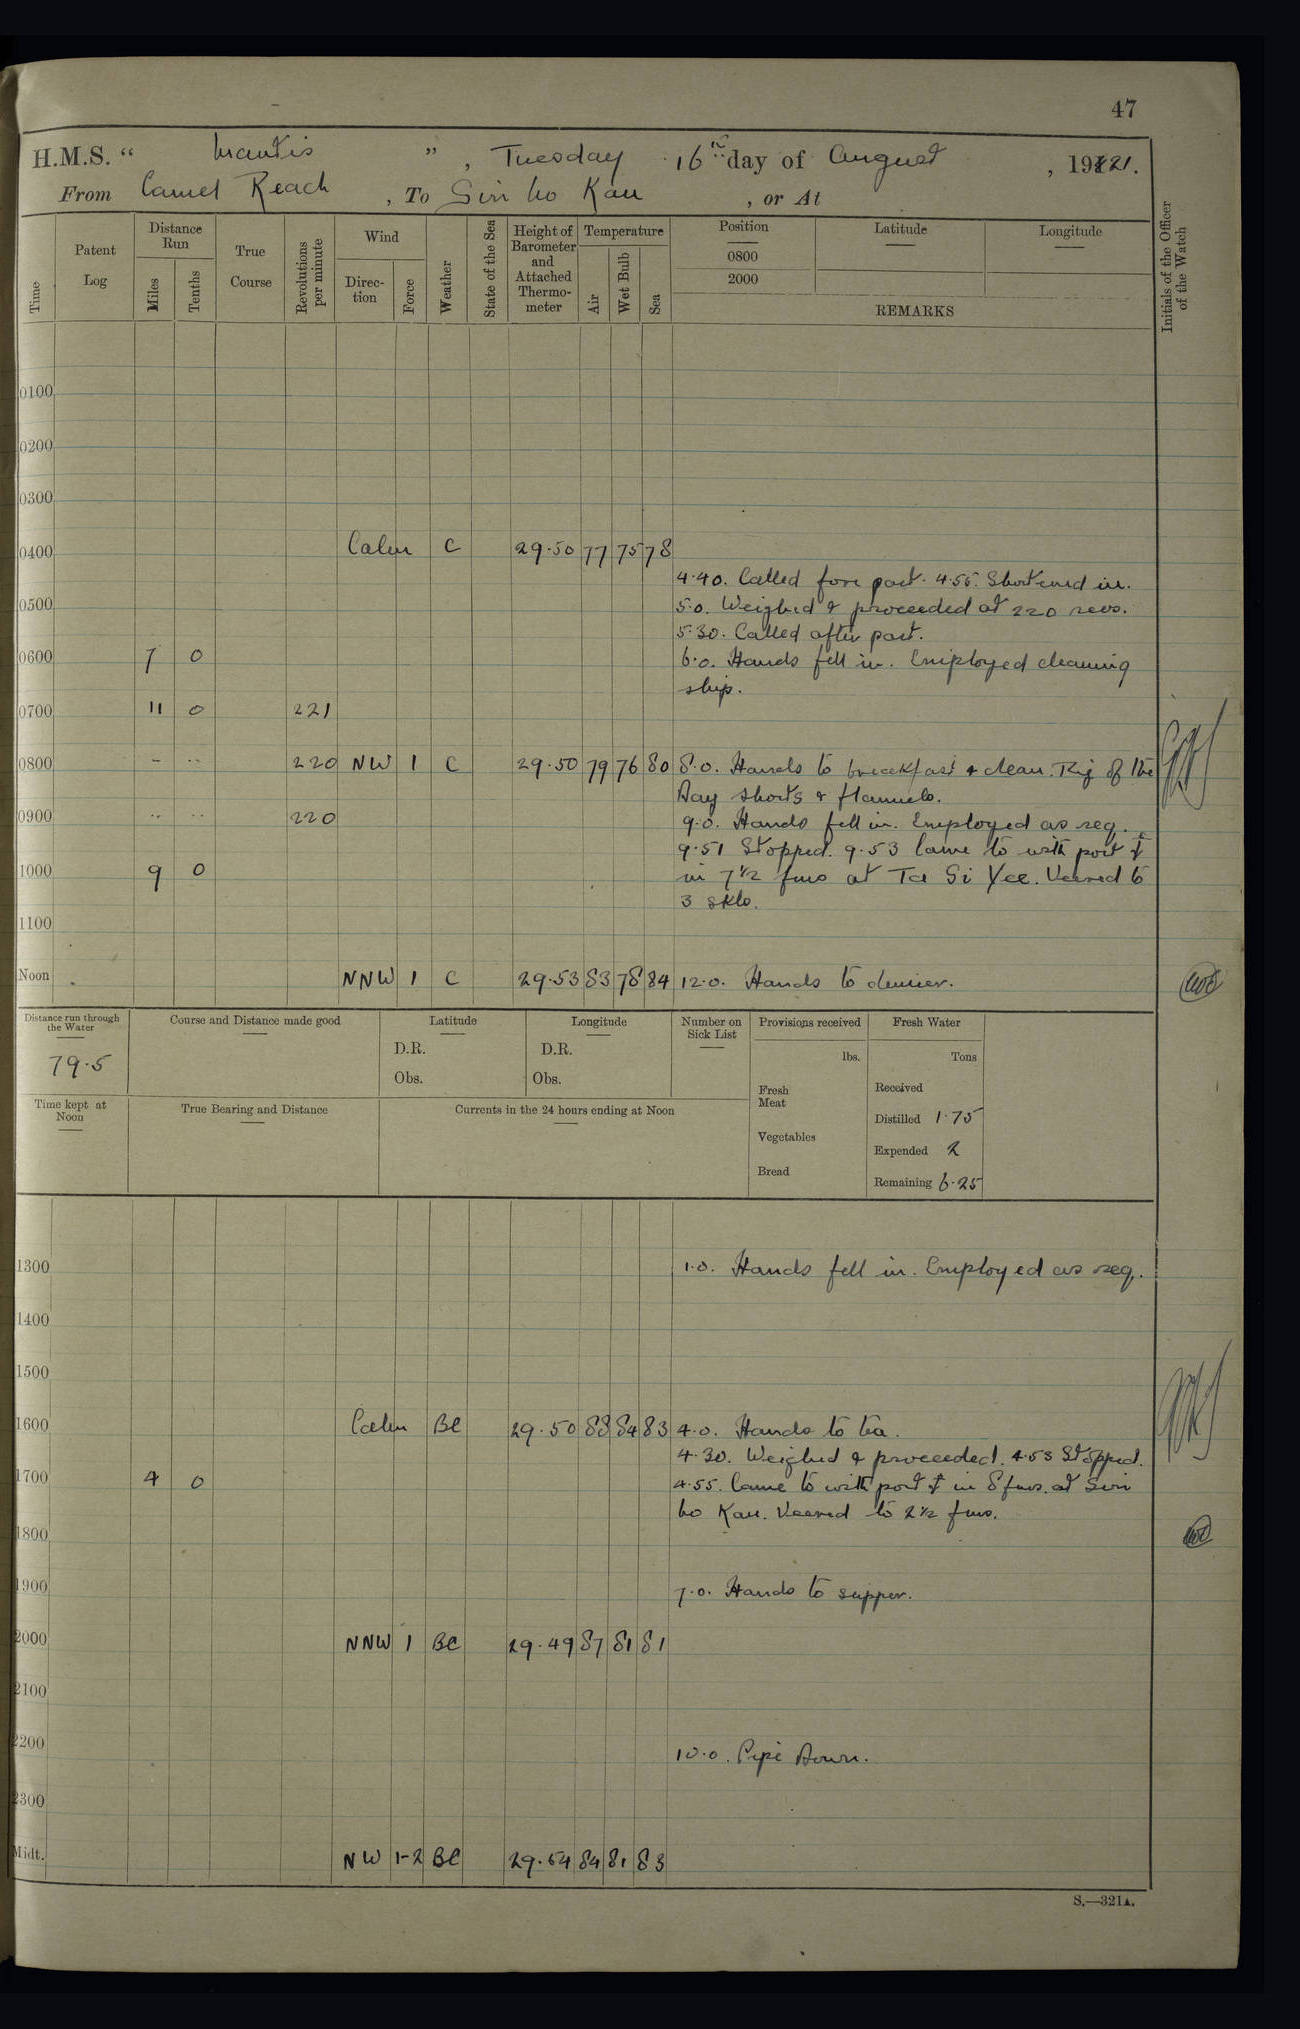 47
H.M.S. “ Mantis ” , Tuesday 16th day of August , 1921.
From Camel Reach , To Siri ho Kau , or At
Time
Patent Log
Distance Run
Miles
Tenths
True Course
Revolutions per minute
Wind
Direction
Force
Weather
State of the Sea
Height of Barometer and Attached Thermometer
Temperature
Air
Wet Bulb
Sea
Position
0800
2000
Latitude
Longitude
REMARKS
Initials of the Officer of the Watch
0100
0200
0300
0400 Calm C 29.50 77 75 78
4.40. Called fore part. 4.55. Shortened in.
0500 5.0. Weighed & proceeded at 220 revs.
5.30. Called after part.
0600 7 0 6.0. Hands fell in. Employed cleaning
ship.
0700 11 0 221
0800 - .. 220 NW 1 C 29.50 79 76 80 8.0. Hands to breakfast & clean. Rig of the
Day shorts & flannels.
0900 .. .. 220 9.0. Hands fell in. Employed as req.
9.51 Stopped. 9.53 Came to with port ⚓
1000 9 0 in 7 1/2 fms at Ta Si Yee. Veered to
3 skls.
1100
Noon NNW 1 C 29.53 83 78 84 12.0. Hands to dinner.
Distance run through the Water
79.5
Course and Distance made good
Latitude
D.R.
Obs.
Longitude
D.R.
Obs.
Number on Sick List
Provisions received
lbs.
Fresh Meat
Vegetables
Bread
Fresh Water
Tons
Received
Distilled 1.75
Expended 2
Remaining 6.25
Time kept at Noon
True Bearing and Distance
Currents in the 24 hours ending at Noon
1300 1.0. Hands fell in. Employed as req.
1400
1500
1600 Calm BC 29.50 88 84 83 4.0. Hands to tea.
4.30. Weighed & proceeded. 4.53 Stopped.
1700 4 0 4.55. Came to with port ⚓ in 8 fms. at Siri
ho Kau. Veered to 2 1/2 fms.
1800
1900 7.0. Hands to supper.
2000 NNW 1 BC 29.49 87 81 81
2100
2200 10.0. Pipe Down.
2300
Midt. NW 1-2 BC 29.54 84 81 83
S.—321A.